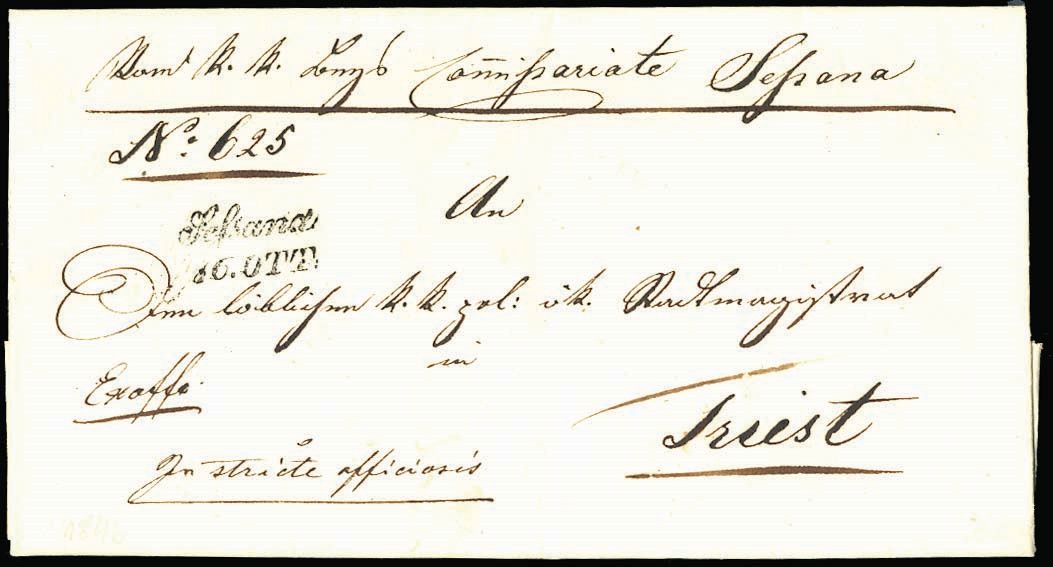 Vom k. k. Bezs Commissariate Sessana
No: 625
An
Sessana
16. OTT.
Den löblichen k. k. pol: ök. Stadtmagistrat
in
Exoffo.
Triest
In stricte officiosis